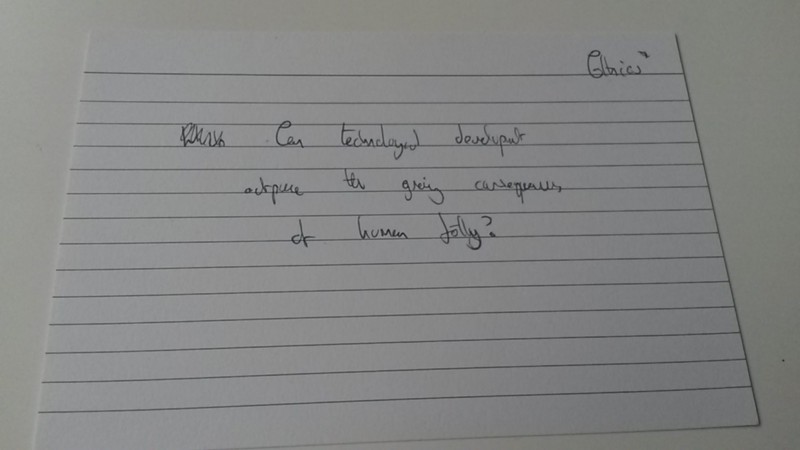 Ethics*
Can technological development
outpace the growing consequences
of human folly?